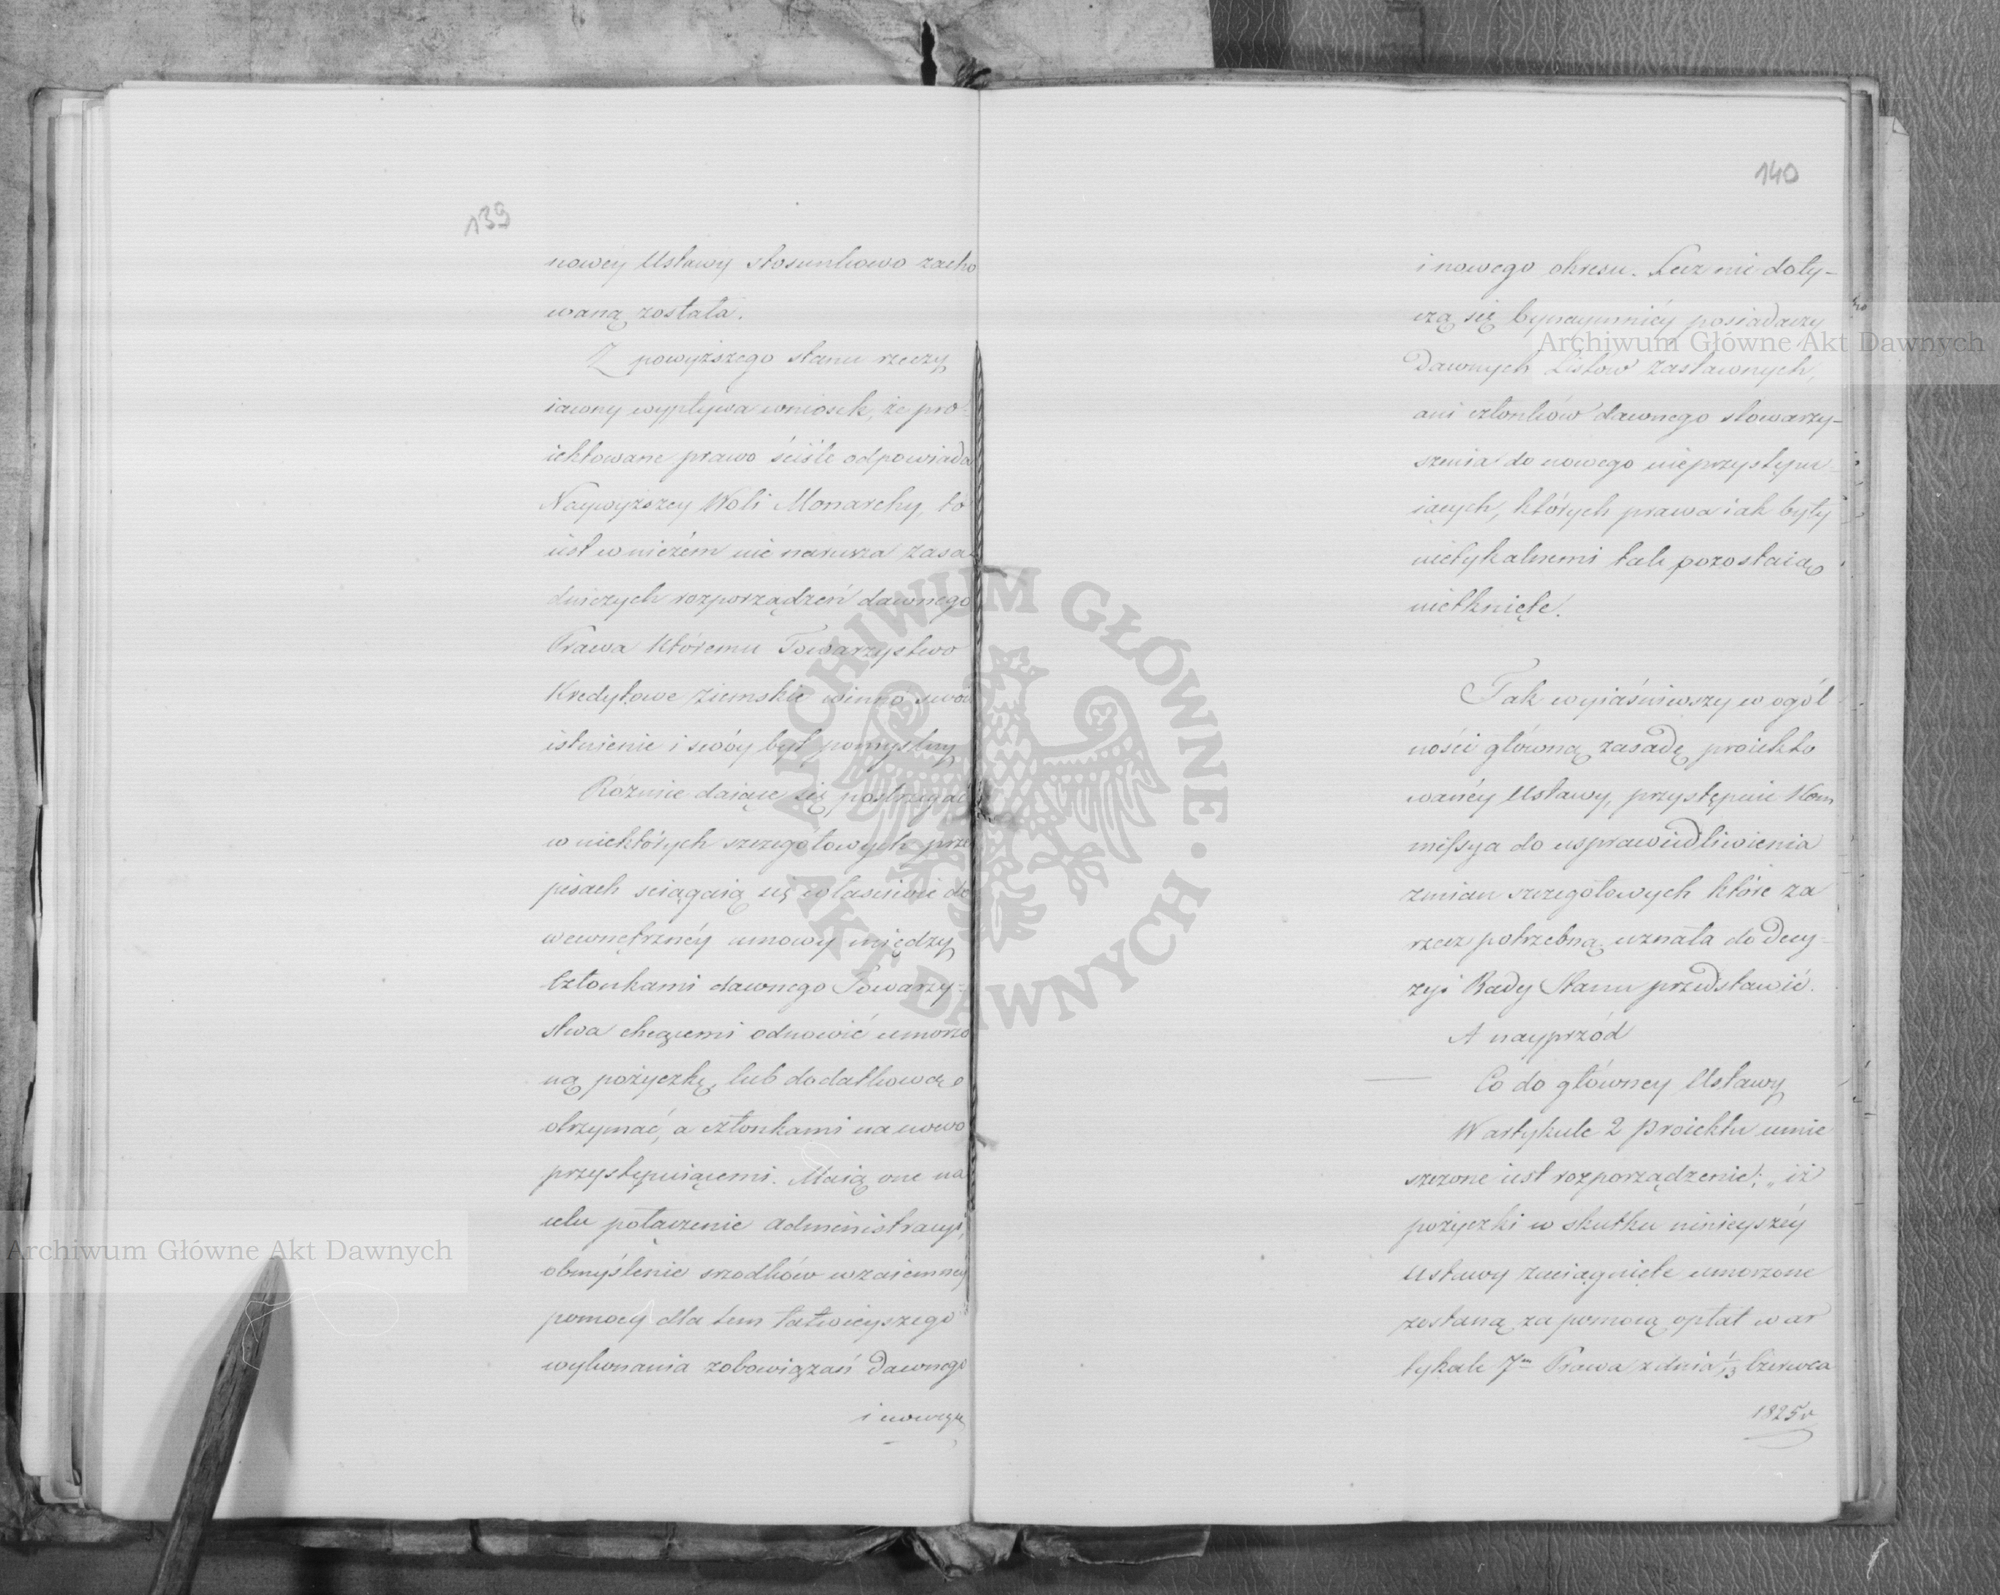 139
nowey Ustawy stosunkowo zacho
waną została.
Z powyższego stanu rzeczy
iawny wypływa wniosek, że pro-
iektowane prawo ściśle odpowiada
Naywyższey Woli Monarchy, to
iest w niczém nie narusza zasa
dniczych rozporządzeń dawnego
Prawa któremu Towarzystwo
Kredytowe ziemskie winno swoie
istnienie i swóy byt pomyślny
Różnice daiące się postrzegać
w niektórych szczegółowych prze
pisach sciągaią się właściwie do
wewnętrznéy umowy między
Członkami dawnego Towarzy-
stwa chcącemi odnowić umorzo
ną pożyczkę, lub dodatkową
otrzymać, a członkami na nowo
przystępuiącemi. Maią one na
celu połączenie administracyi,
obmyślenie srzodków wzaiemney
pomocy dla tem łatwieyszego
wykonania zobowiązań dawnego
i nowego
140
i nowego okresu. Lecz nie doty-
czą się bynaymniéy posiadaczy
Dawnych Listów Zastawnych,
ani członków dawnego stowarzy-
szenia do nowego nieprzystępu-
iących, których prawa iak były
nietykalnemi tak pozostaią
nietknięte.
Tak wyiaśniwszy w ogól
ności główną zasadę proiekto
wanéy Ustawy, przystępuie Kom
missya do usprawiedliwienia
zmian szczegółowych które za
rzecz potrzebną uznała do Decy-
zyi Rady Stanu przedstawić.
A nayprzód
Co do główney Ustawy
W artykule 2 Proiektu umie
szczone iest rozporządzenie; „iż
pożyczki w skutku ninieyszéy
Ustawy zaciągnięte umorzone
zostaną za pomocą opłat w ar
tykule 7m Prawa z dnia 1/13 Czerwca
1825 r
Archiwum Główne Akt Dawnych
Archiwum Główne Akt Dawnych
ARCHIWUM GŁÓWNE • AKT DAWNYCH •